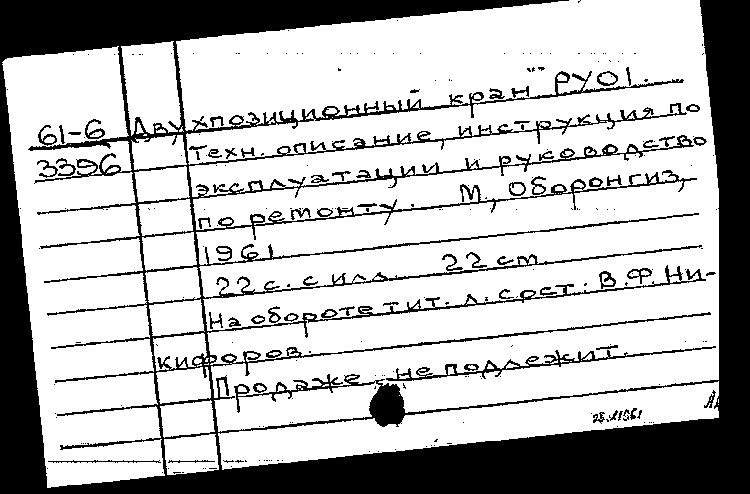 61-6 Двухпозиционный кран "" РУ01.
3396 Техн. описание, инструкция по
эксплуатации и руководство
по ремонту. М., Оборонгиз,
1961.
22 с. с илл. 22 cm.
На обороте тит. л. сост.: В.Ф. Ни-
кифоров.
Продаже не подлежит.